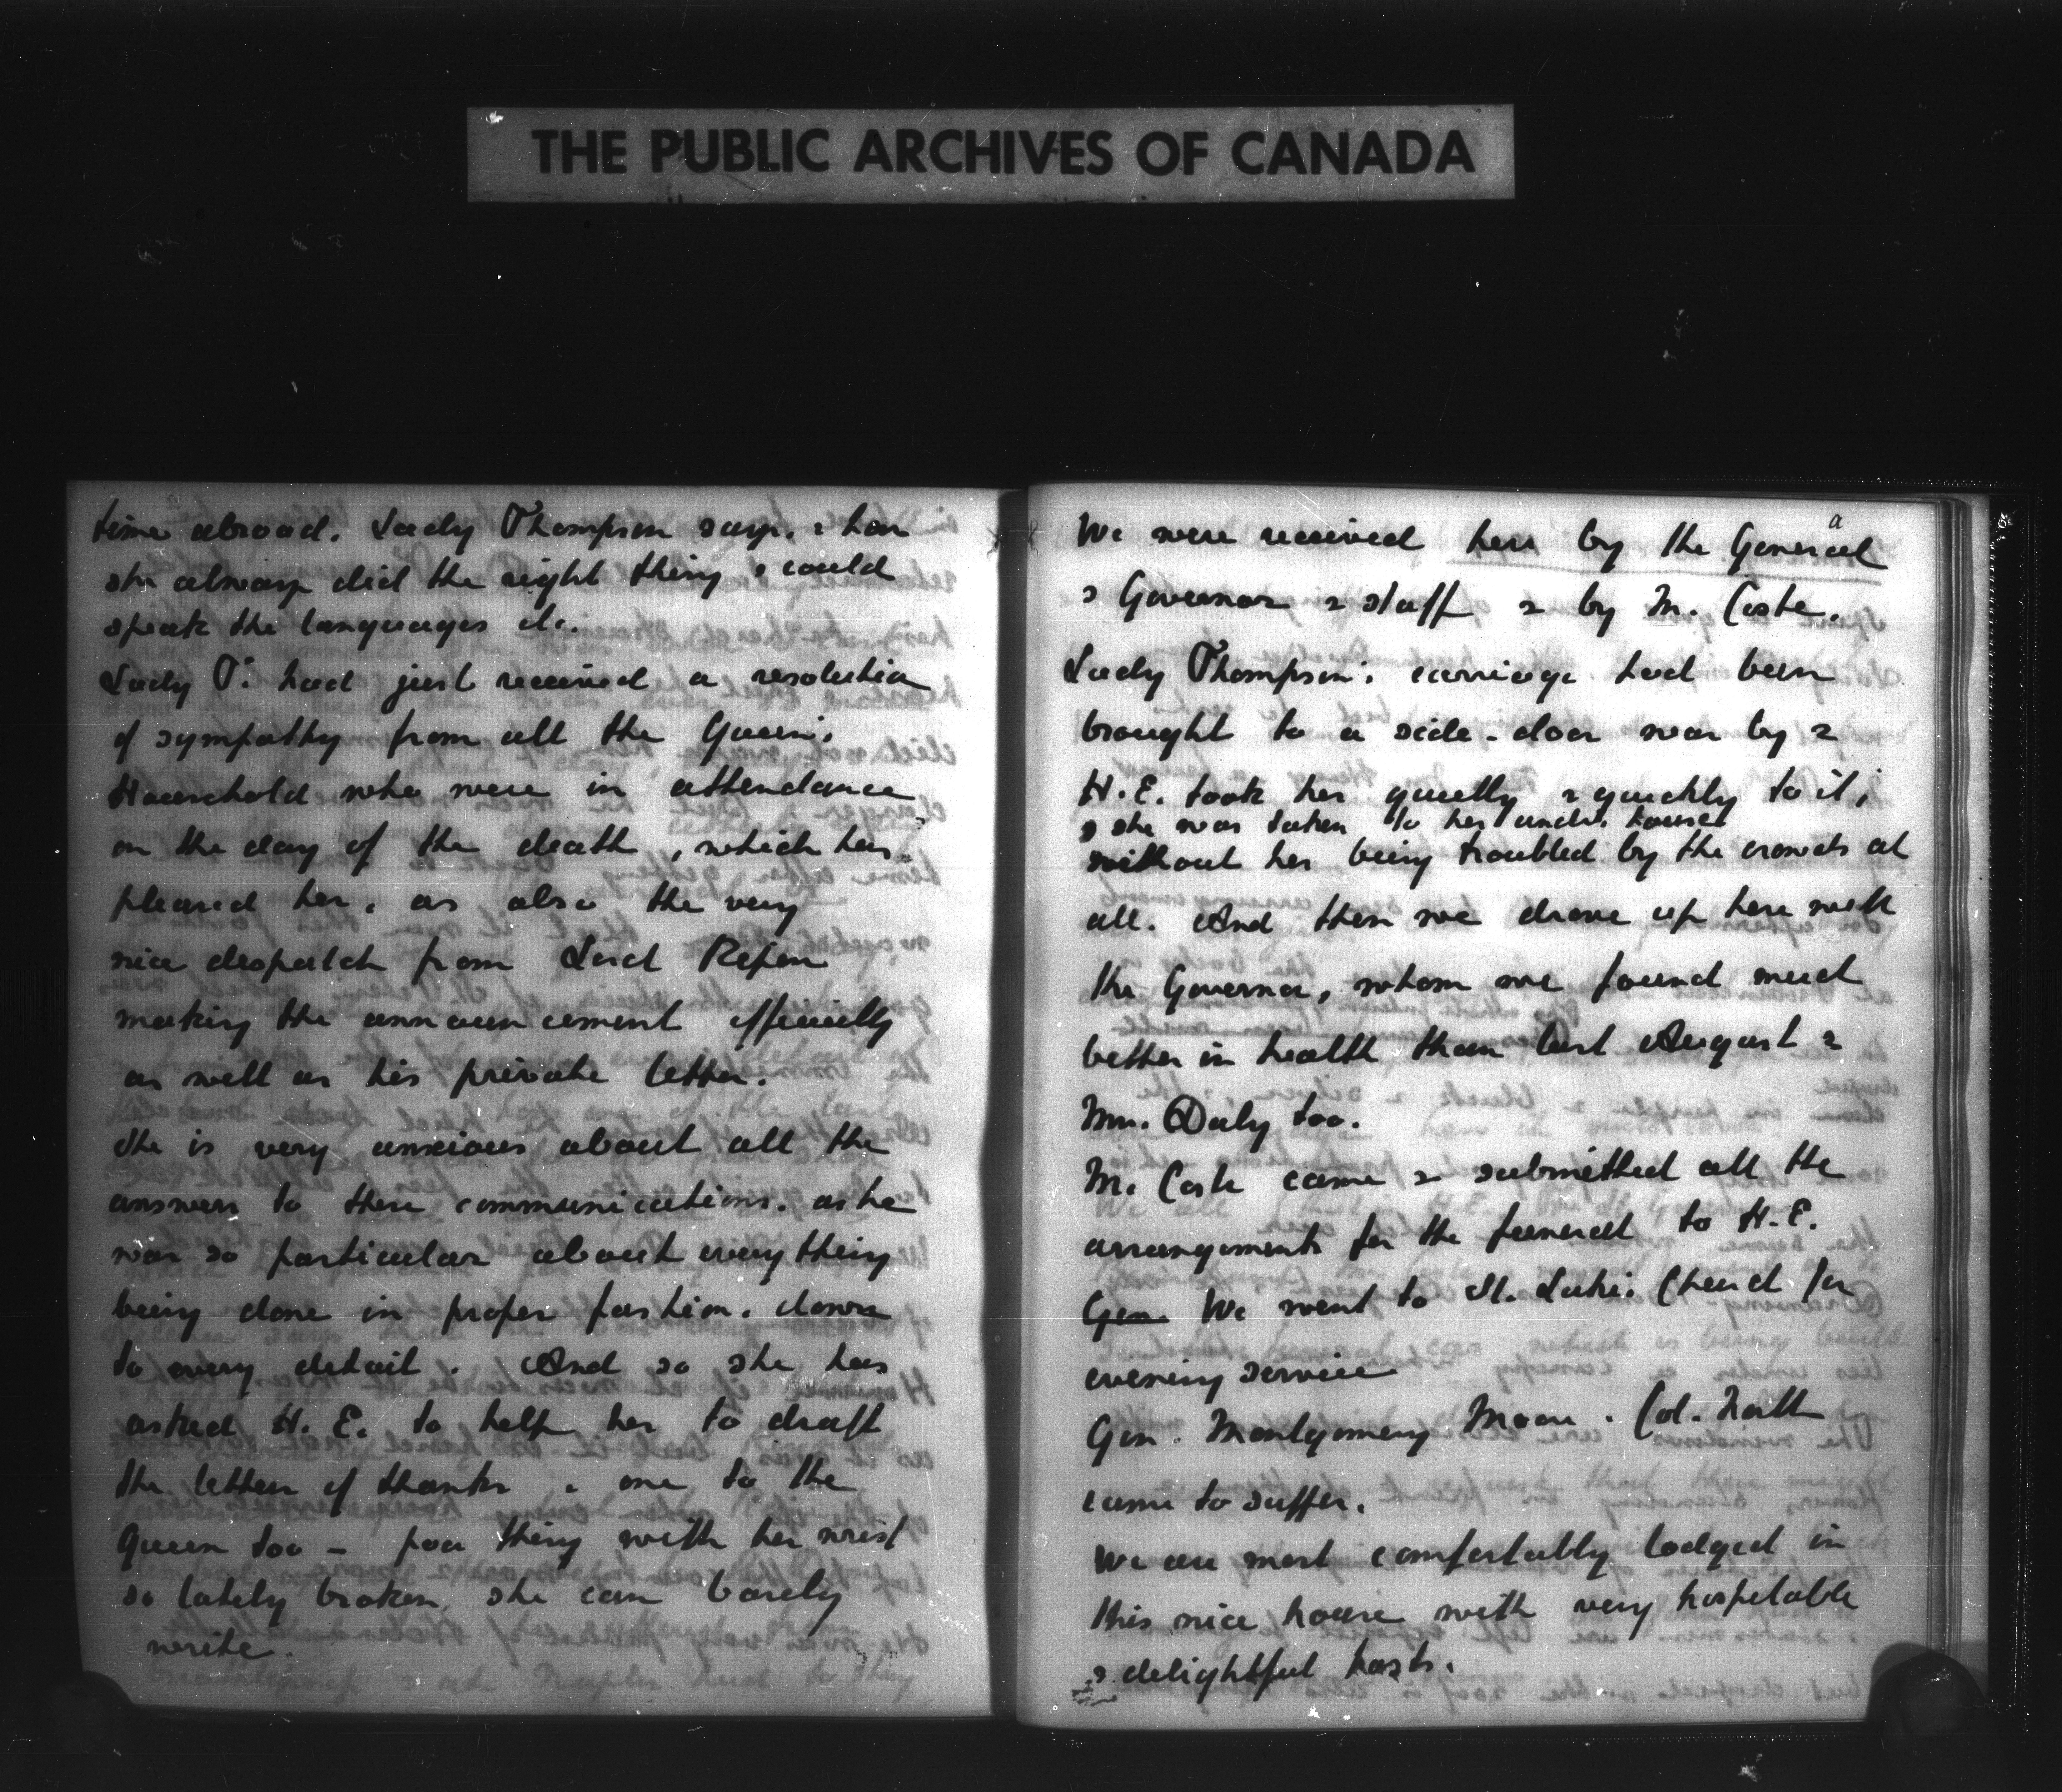 THE PUBLIC ARCHIVES OF CANADA
time abroad. Lady Thompson says, & how
she always did the right thing & could
speak the languages etc.
Lady T. had just received a resolution
of sympathy from all the Queen's
Household who were in attendance
on the day of the death, which has
pleased her, as also the very
nice despatch from Lord Ripon
making the announcement officially
as well as his private letter.
She is very anxious about all the
answers to these communications, as he
was so particular about everything
being done in proper fashion, down
to every detail. And so she has
asked H. E. to help her to draft
the letters of thanks & one to the
Queen too – poor thing with her wrist
so lately broken, she can barely
write.
We were received here by the General
& Governor & staff & by M. Coste.
Lady Thompson's carriage had been
brought to a side-door near by &
H. E. took her quietly & quickly to it,
& she was taken to her house
without her being troubled by the crowds at
all. And then we drove up here with
the Governor, whom we found much
better in health than last August &
Mrs. Daly too.
M. Coste came & submitted all the
arrangements for the funeral to H. E.
Gen We went to St. Luke's Church for
evening service
Gen. Montgomery Moore. Col. North
came to supper.
We are most comfortably lodged in
this nice house with very hospitable
& delightful hosts.